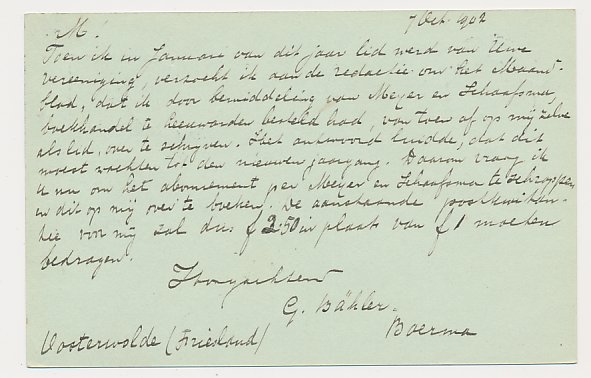 7 Oct. 1902
M.
Toen ik in Januari van dit jaar lid werd van Uwe
vereeniging, verzocht ik aan de redactie om het Maand-
blad, dat ik door bemiddeling van Meyer en Schaafsma,
boekhandel te Leeuwarden besteld had, van toen af op mij zelve
als lid, over te schrijven. Het antwoord luidde, dat dit
moest wachten tot den nieuwen jaargang. Daarom vraag ik
u nu om het abonnement per Meyer en Schaafsma te schrappen
en dit op mij over te boeken. De aanstaande postkwitan-
tie voor mij zal dus f 2.50 in plaats van f 1 moeten
bedragen.
Hoogachtend
G. Bähler.
Boerma
Oosterwolde (Friesland)